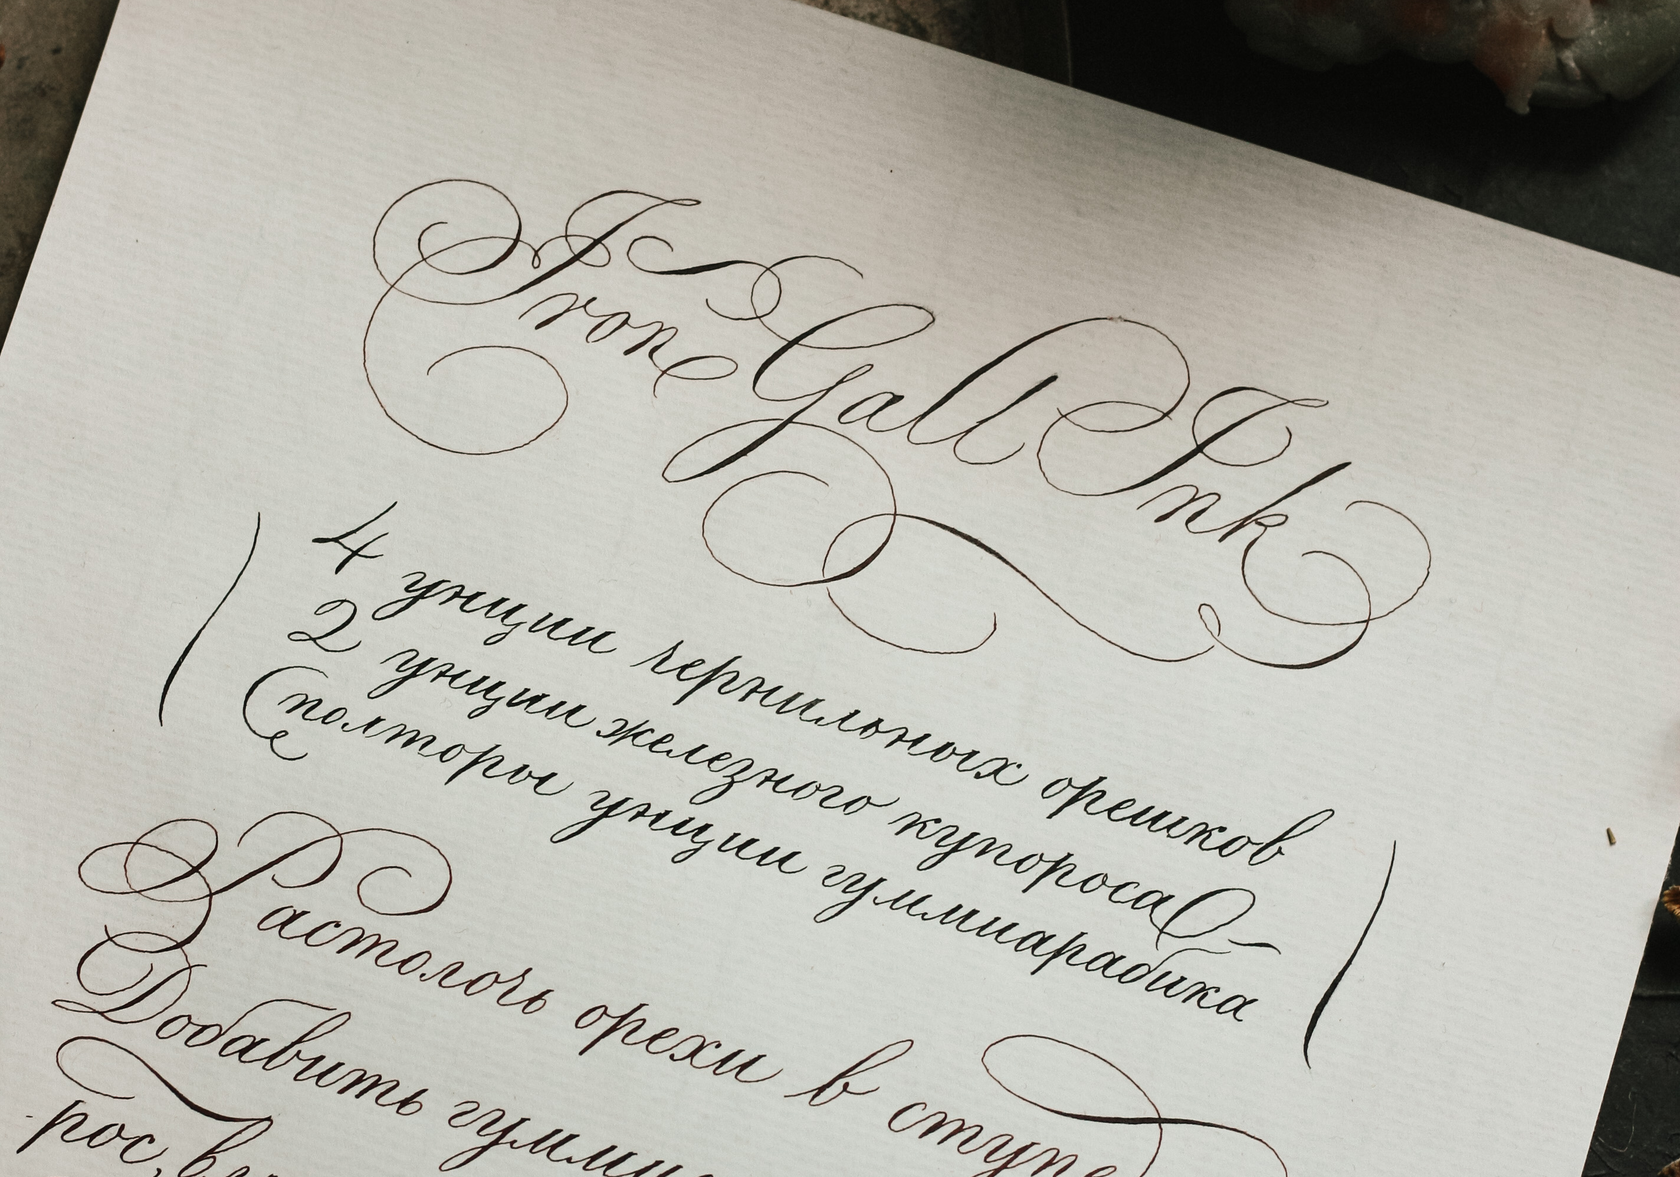 Iron Gall Ink
4 унции чернильных орешков
2 унции железного купороса
полторы унции гуммиарабика
Растолочь орехи в ступе
Добавить гумми
рос, в